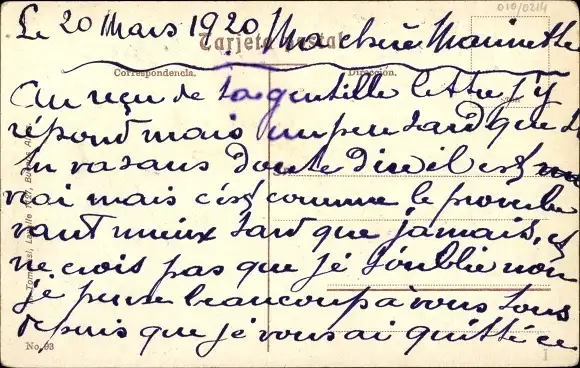 010/0214
Le 20 Mars 1920 Ma chère Mainette
Tarjeta Postal
Correspondencia. Dirección.
Au reçu de ta gentille lettre j'y
répond mais un peu tard que tu
en va sans doute dire il est
vrai mais c'est comme le proverbe
vaut mieux tard que jamais, et
ne crois pas que je t'oublie non
je pense beaucoup à vous tous
depuis que je vous ai quitté ce
No. 93
1